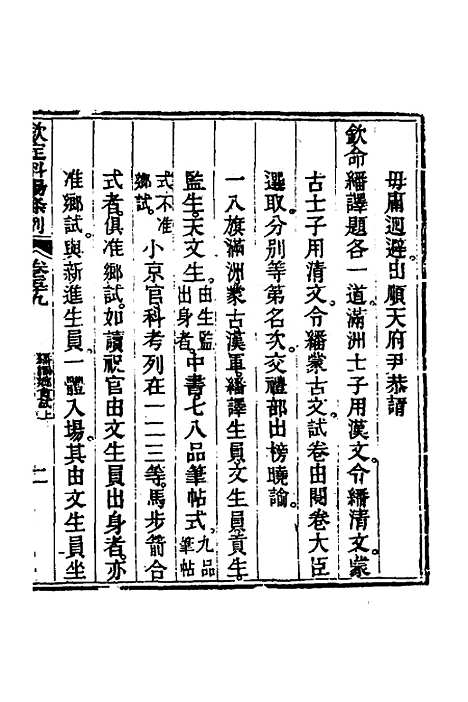 毋庸迴避由順天府尹恭請
欽命繙譯題各一道滿洲士子用漢文令繙清文蒙
古士子用清文令繙蒙古文試卷由閱卷大臣
選取分別等第名次交禮部出榜曉諭
一八旗滿洲蒙古漢軍繙譯生員文生員貢生
監生天文生由生監出身者中書七八品筆帖式九品筆帖
式不准鄉試小京官科考列在一二三等馬步箭合
式者俱准鄉試如讀祝官由文生員出身者亦
准鄉試與新進生員一體入場其由文生員坐
欽定科場條例
卷五十九
繙譯鄉會試上